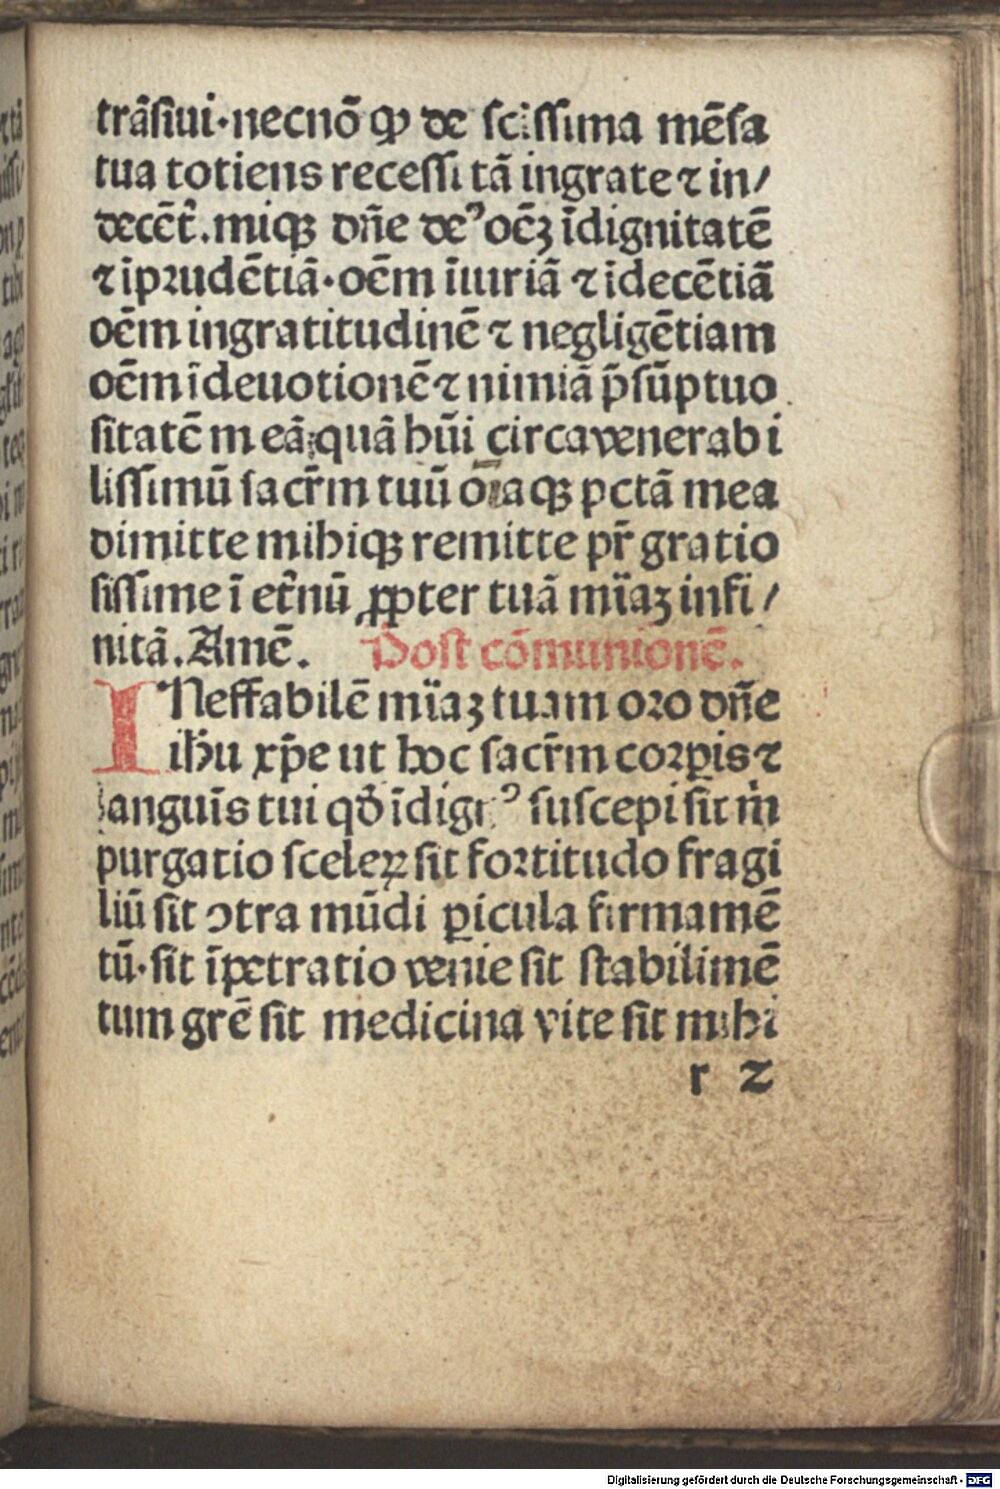 trãſiui·necnõ ꝙ de ſciſſima mẽſa
tua totiens receſſi tã ingrate ⁊ in/
decẽt̃.miqꝫ dñe deꝰ oẽꝫ ĩdignitatẽ
⁊ ĩprudẽtiã·oẽm ĩiuriã ⁊ ĩdecẽtiã
oẽm ingratitudinẽ ⁊ negligẽtiam
oẽm ĩdeuotionẽ ⁊ nimiã p̃ſũptuo
ſitatẽ meã:quã hũi circa venerabi
liſſimũ ſacr̃m tuũ oĩaqꝫ pctã mea
dimitte mihiqꝫ remitte pr̃ gratio
ſiſſime ĩ et̃nũ ꝓpter tuã mĩaꝫ infi/
nitã.Amẽ. Poſt cõmunionẽ.
INeffabilẽ mĩaꝫ tuam oꝛo dñe
ih̃u xp̃e ut hoc ſacr̃m coꝛꝑis ⁊
ſanguĩs tui qð ĩdignꝰ ſuſcepi ſit m̃
purgatio ſceleꝝ ſit foꝛtitudo fragi
liũ ſit ꝯtra mũdi ꝑicula firmamẽ
tũ·ſit ĩpetratio venie ſit ſtabilimẽ
tum grẽ ſit medicina vite ſit mihi
r 2
Digitalisierung gefördert durch die Deutsche Forschungsgemeinschaft - DFG